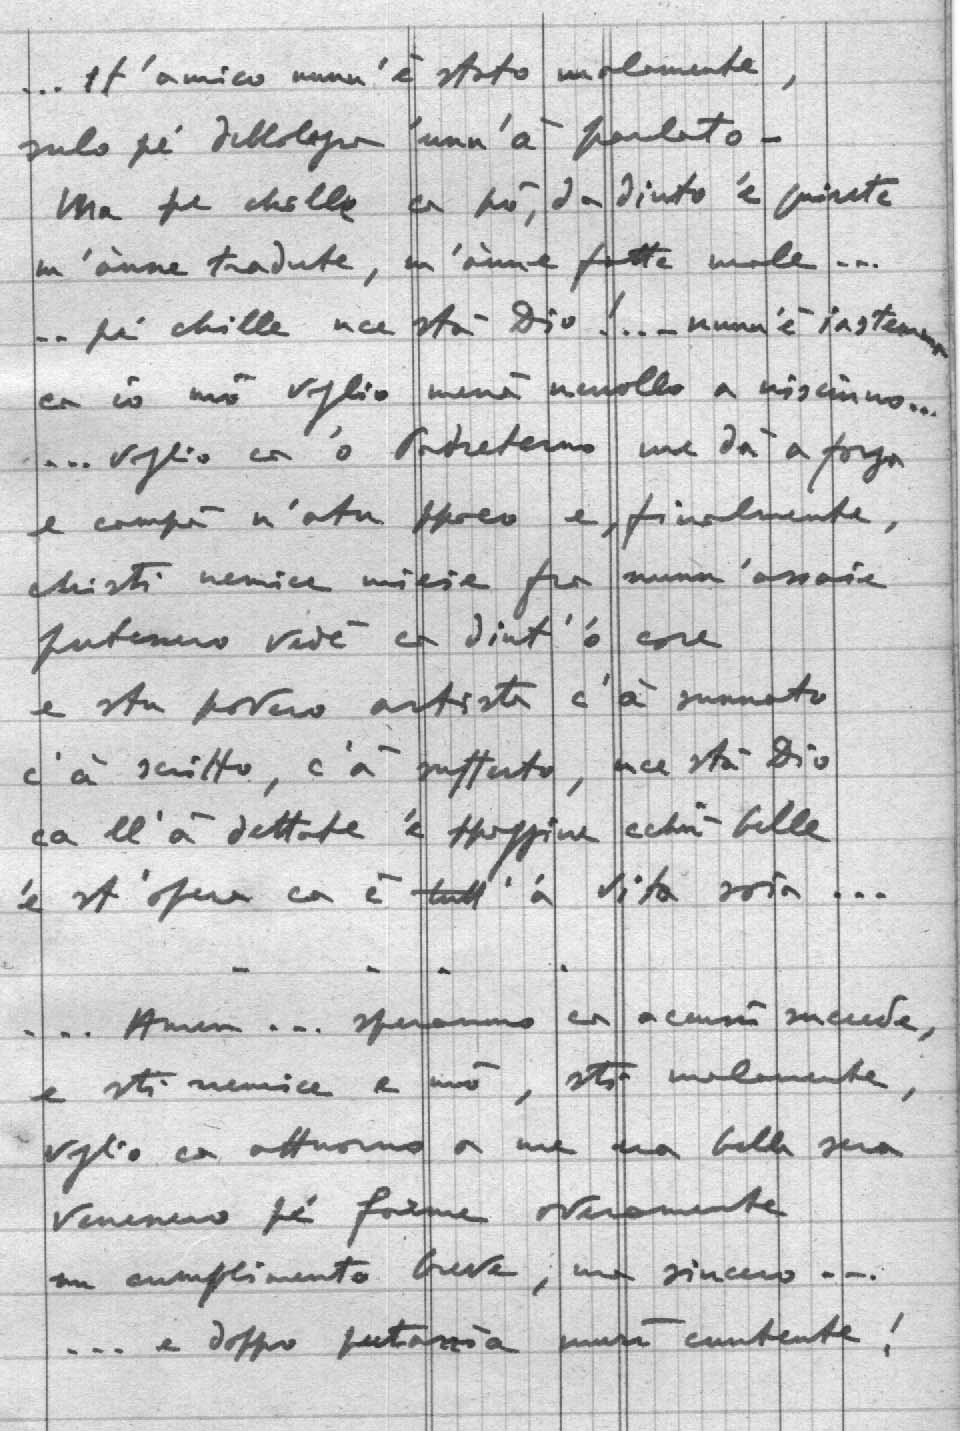 ... St'amico nunn'è stato malamente,
sulo pé debbolezza 'nun'à parlato -
Ma pe chille ca pò, da dinto 'e quinte
m'ànne tradute, m'ànne fatte male ...
.. pé chille nce stà Dio!... nunn'è iastemma
ca io mò voglio menà ncuollo a nisciuno...
... voglio ca 'o Patreterno me dà a forza
e campà n'atu ppoco e, finalmente,
chisti nemice mieie fra nunn'assaie
putessero vedé ca dint' 'o core
e stu povero artista c'à sunnato
c'à scritto, c'à suffierto, nce stà Dio
ca ll'à dettate 'e ppaggine cchiù belle
'e st'opera ca è tutt' 'a vita soia ...
- - - .
... Amen ... speranno ca accussì succede,
e sti nemice e mò, sti malamente,
voglio ca attuorno a me na bella sera
venessero pé farme overamente
nu cumplimento breve, ma sincero ...
... e doppo putarria murì cuntente!